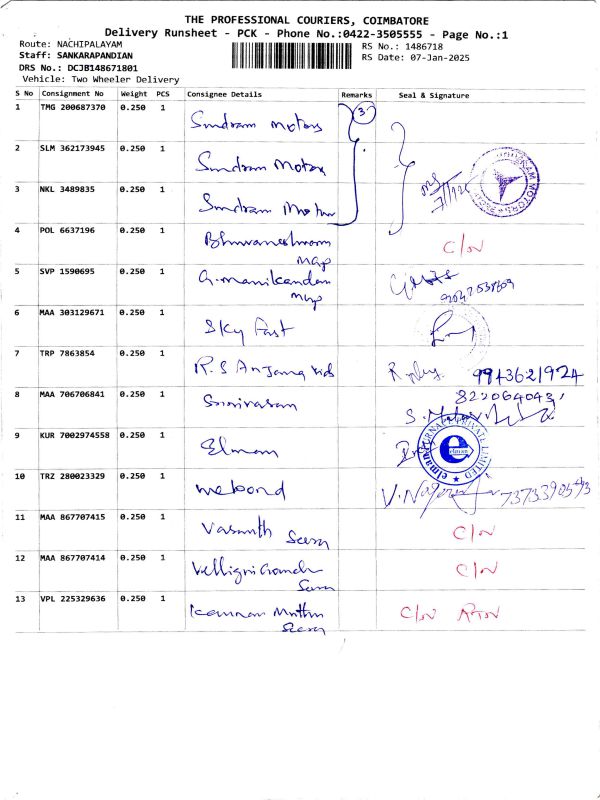 THE PROFESSIONAL COURIERS, COIMBATORE
Delivery Runsheet - PCK - Phone No.:0422-3505555 - Page No.:1
Route: NACHIPALAYAM
Staff: SANKARAPANDIAN
DRS No.: DCJB148671801
Vehicle: Two Wheeler Delivery
RS No.: 1486718
RS Date: 07-Jan-2025
S No Consignment No Weight PCS Consignee Details Remarks Seal & Signature
1 TMG 200687370 0.250 1 Sundram Motors 3
2 SLM 362173945 0.250 1 Sundram Motors
3 NKL 3489835 0.250 1 Sundram Motors
4 POL 6637196 0.250 1 Bhuvaneshwari C/N
5 SVP 1590695 0.250 1 G. Manikandan
6 MAA 303129671 0.250 1 Sky Fast
7 TRP 7863854 0.250 1 R.S Anjana kids 9943621924
8 MAA 706706841 0.250 1 Srinivasan
9 KUR 7002974558 0.250 1 Elman
10 TRZ 280023329 0.250 1 mebond
11 MAA 867707415 0.250 1 Vasanth C/N
12 MAA 867707414 0.250 1 C/N
13 VPL 225329636 0.250 1 C/N